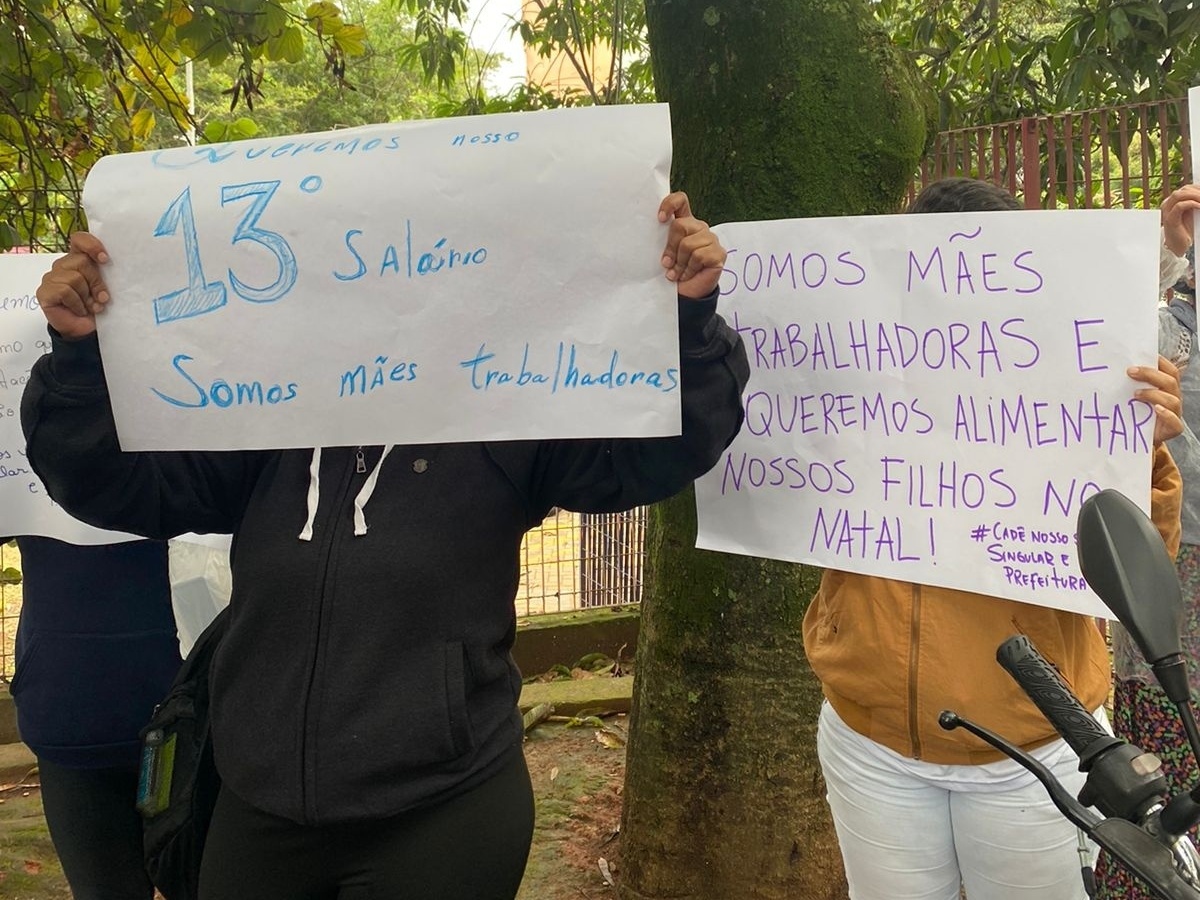 Queremos nosso
13° Salário
Somos mães trabalhadoras
SOMOS MÃES
TRABALHADORAS E
QUEREMOS ALIMENTAR
NOSSOS FILHOS NO
NATAL!
#CADÊ NOSSO
SINGULAR E
PREFEITURA